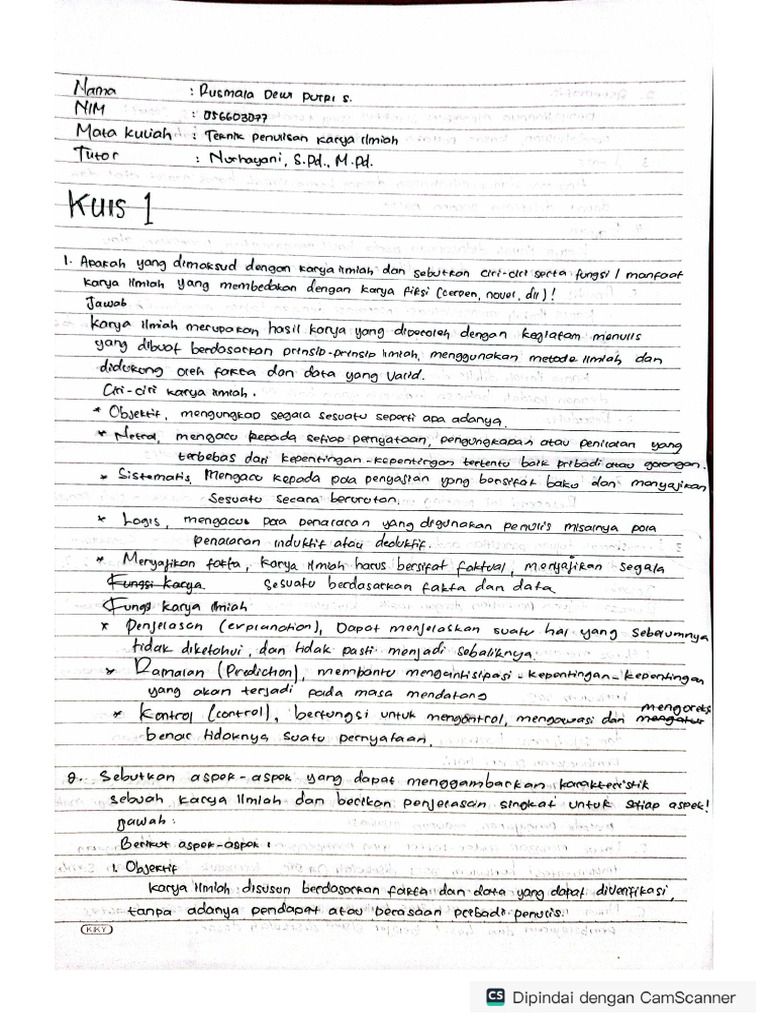 Nama : Rusmala Dewi Putri S.
NIM : 056603077
Mata kuliah : Teknik penulisan karya Ilmiah
Tutor : Nurhayani, S.Pd., M.Pd.
Kuis 1
1. Apakah yang dimaksud dengan karya ilmiah dan sebutkan ciri-ciri serta fungsi / manfaat
karya Ilmiah yang membedakan dengan karya fiksi (cerpen, novel, dll)!
Jawab
karya Ilmiah merupakan hasil karya yang diperoleh dengan kegiatam menulis
yang dibuat berdasarkan prinsip-prinsip ilmiah, menggunakan metode Ilmiah, dan
didukung oleh fakta dan data yang valid.
Ciri-ciri karya ilmiah.
* Objektif, mengungkap segala sesuatu seperti apa adanya.
* Netral, mengacu kepada setiap pernyataan, pengungkapan atau penilaian yang
terbebas dari kepentingan-kepentingan tertentu baik pribadi atau golongan.
* Sistematis, Mengacu kepada pola penyajian yang bersifat baku dan menyajikan
Sesuatu secara berurutan.
* Logis, mengacu pola penalaran yang digunakan penulis misalnya pola
penalaran induktif atau deduktif.
* Menyajikan fakta, karya ilmiah harus bersifat faktual, menyajikan segala
Fungsi Karya. sesuatu berdasarkan fakta dan data.
Fungsi karya ilmiah
* Penjelasan (explanation), Dapat menjelaskan suatu hal yang sebelumnya
tidak diketahui, dan tidak pasti menjadi sebaliknya.
* Ramalan (Prediction), membantu mengantisipasi - kepentingan-kepentingan
yang akan terjadi pada masa mendatang
* Kontrol (control), berfungsi untuk mengontrol, mengawasi dan mengoreks mengatur
benar tidaknya suatu pernyataan.
2. Sebutkan aspek-aspek yang dapat menggambarkan karakteristik
sebuah karya Ilmiah dan berikan penjelasan singkat untuk setiap aspek!
Jawab:
Berikut aspek-aspek :
1. Objektif
karya Ilmiah disusun berdasarkan fakta dan data yang dapat diverifikasi,
tanpa adanya pendapat atau perasaan pribadi penulis.
KKY
CS Dipindai dengan CamScanner